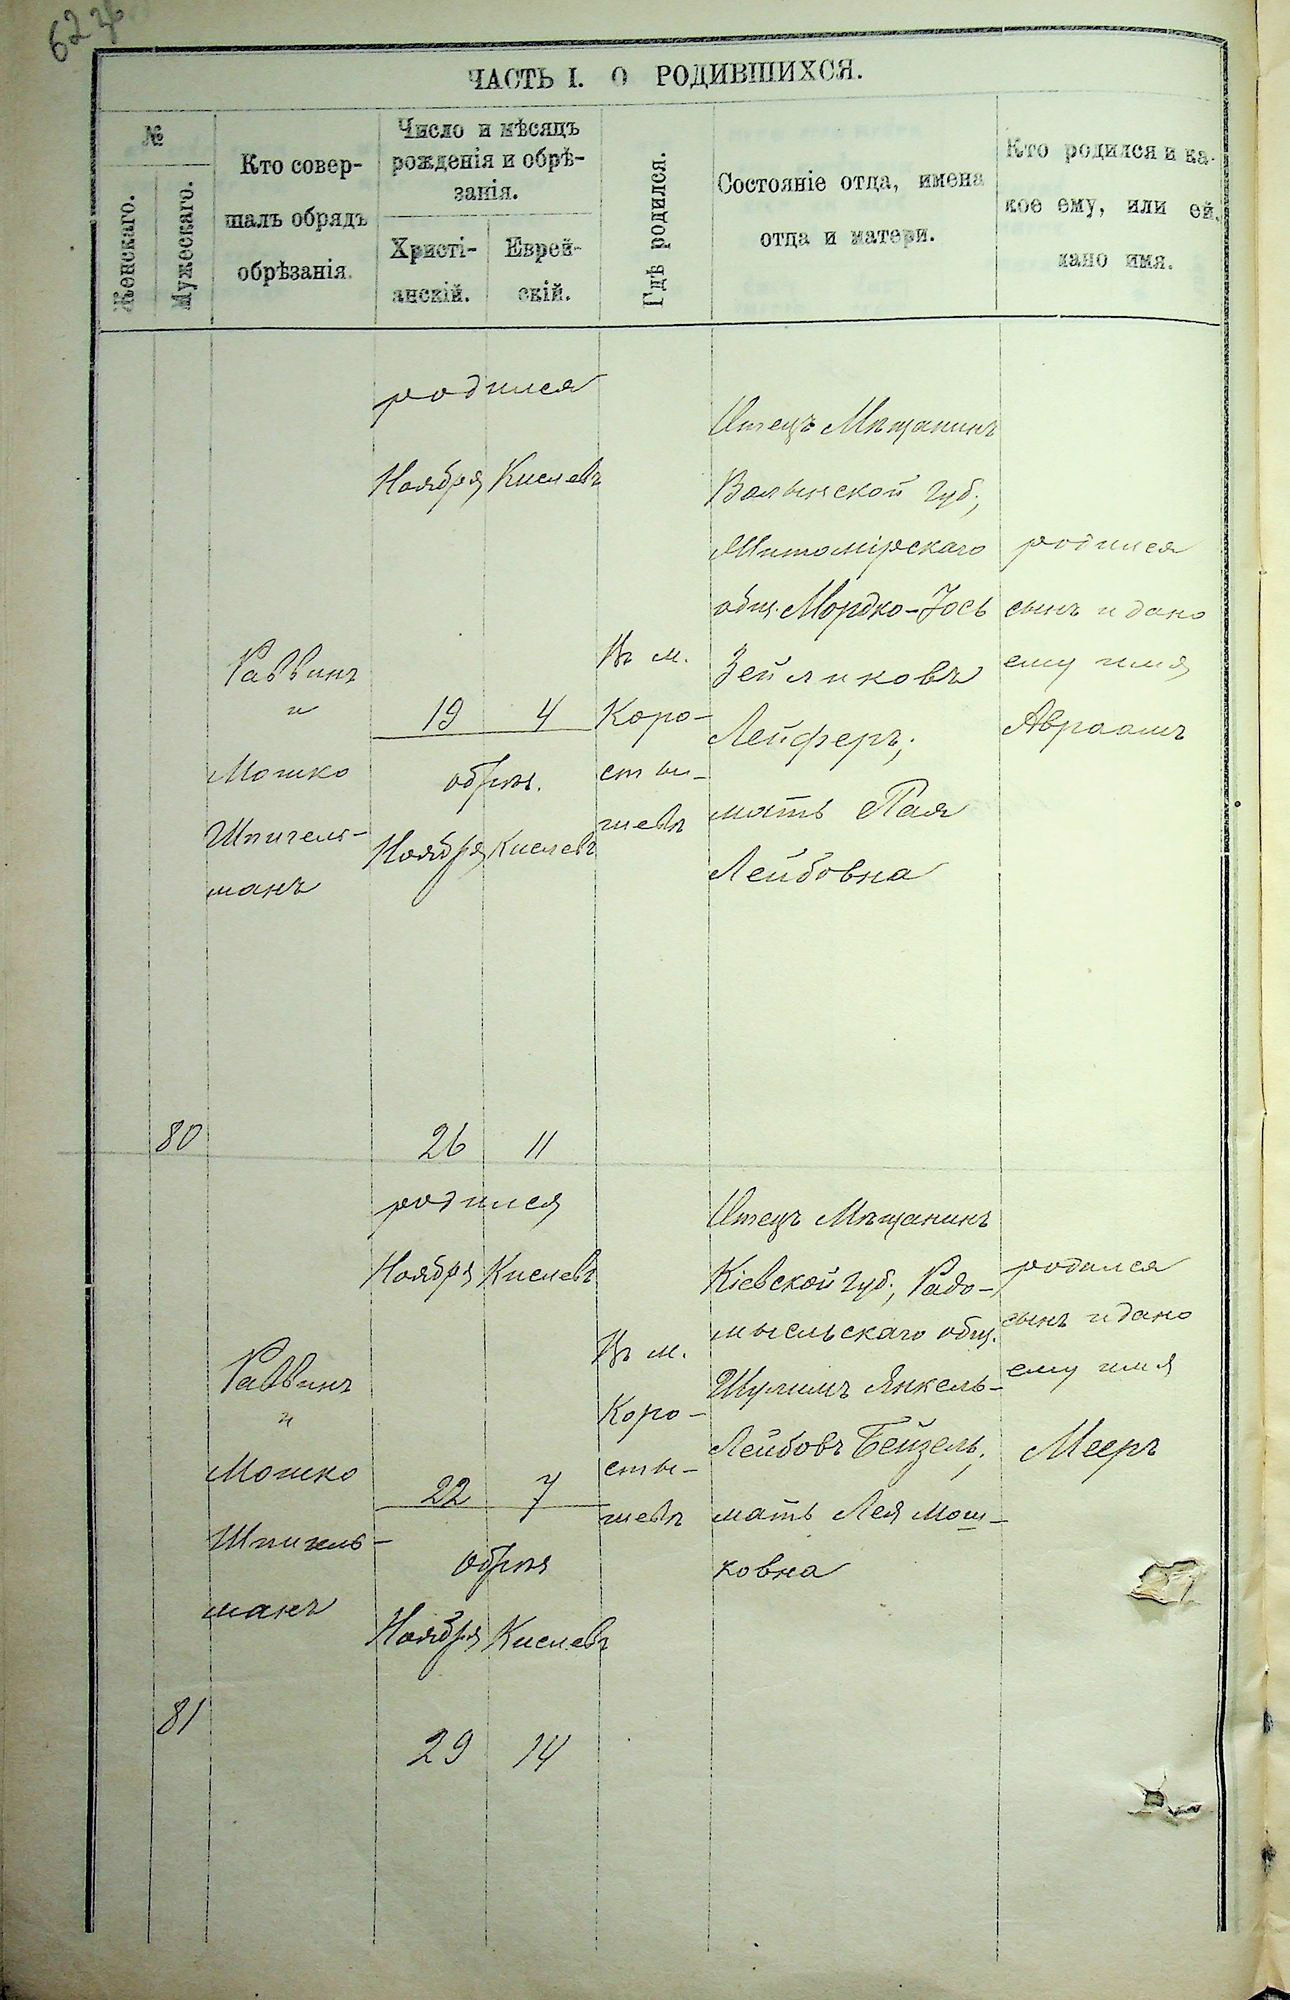 622
ЧАСТЬ I. О РОДИВШИХСЯ.
№
Женскаго.
Мужескаго.
Кто совер-
шалъ обрядъ
обрѣзанія.
Число и мѣсяцъ
рожденія и обрѣ-
занія.
Христі-
анскій.
Еврей-
скій.
Гдѣ родился.
Состояніе отца, имена
отца и матери.
Кто родился и ка-
кое ему, или ей,
дано имя.
80
Раввинъ
и
Мошко
Шпигель-
манъ
родился
Ноября Кислевъ
19 4
обрѣз.
Ноября Кислевъ
26 11
Въ м.
Коро-
сты-
шевѣ
Отецъ Мѣщанинъ
Волынской губ.,
Житомірскаго
общ. Мордко-Іось
Зейликовъ
Лейферъ;
мать Пая
Лейбовна
родился
сынъ и дано
ему имя
Авраамъ
81
Раввинъ
и
Мошко
Шпигель-
манъ
родился
Ноября Кислевъ
22 7
обрѣз
Ноября Кислевъ
29 14
Въ м.
Коро-
сты-
шевѣ
Отецъ Мѣщанинъ
Кіевской губ., Радо-
мысльскаго общ.
Шулимъ Янкель-
Лейбовъ Бейзель;
мать Лея Мош-
ковна
родился
сынъ и дано
ему имя
Мееръ